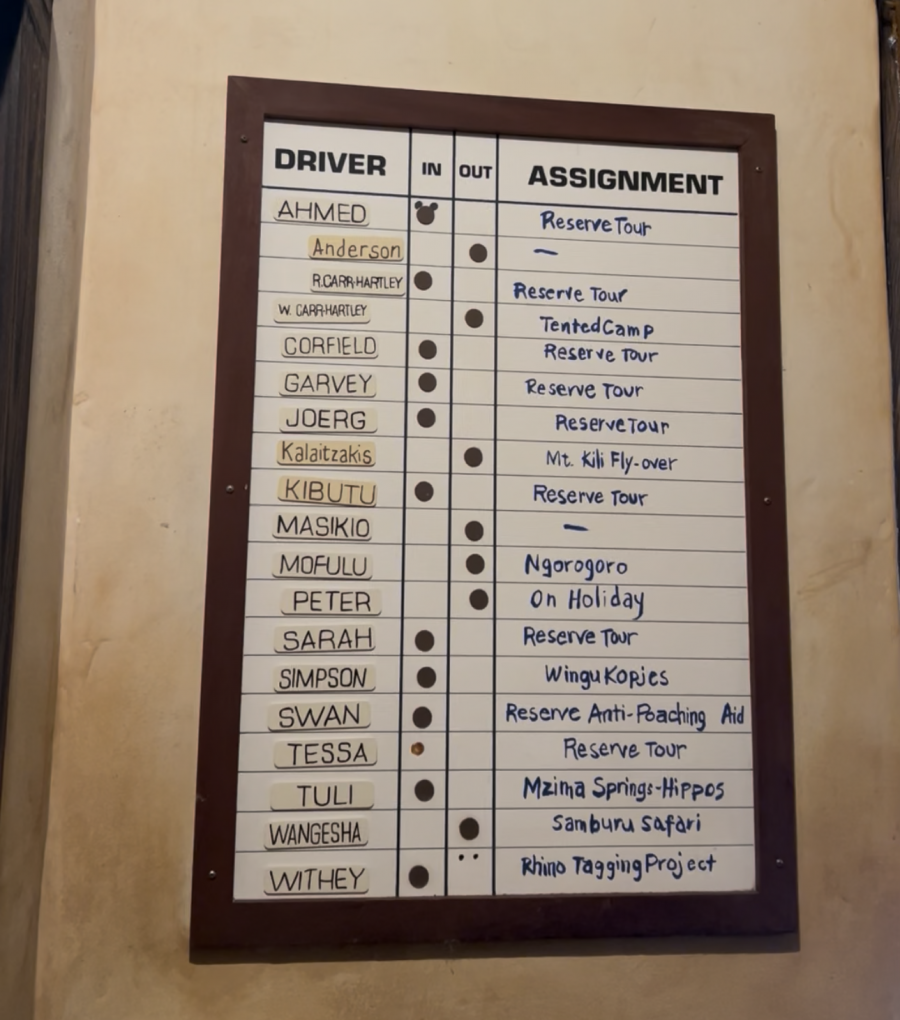 DRIVER IN OUT ASSIGNMENT
AHMED Reserve Tour
Anderson —
R.CARR-HARTLEY Reserve Tour
W. CARR-HARTLEY Tented Camp
CORFIELD Reserve Tour
GARVEY Reserve Tour
JOERG Reserve Tour
Kalaitzakis Mt. Kili Fly-over
KIBUTU Reserve Tour
MASIKIO —
MOFULU Ngorogoro
PETER On Holiday
SARAH Reserve Tour
SIMPSON Wingu Kopjes
SWAN Reserve Anti-Poaching Aid
TESSA Reserve Tour
TULI Mzima Springs-Hippos
WANGESHA Samburu Safari
WITHEY Rhino Tagging Project